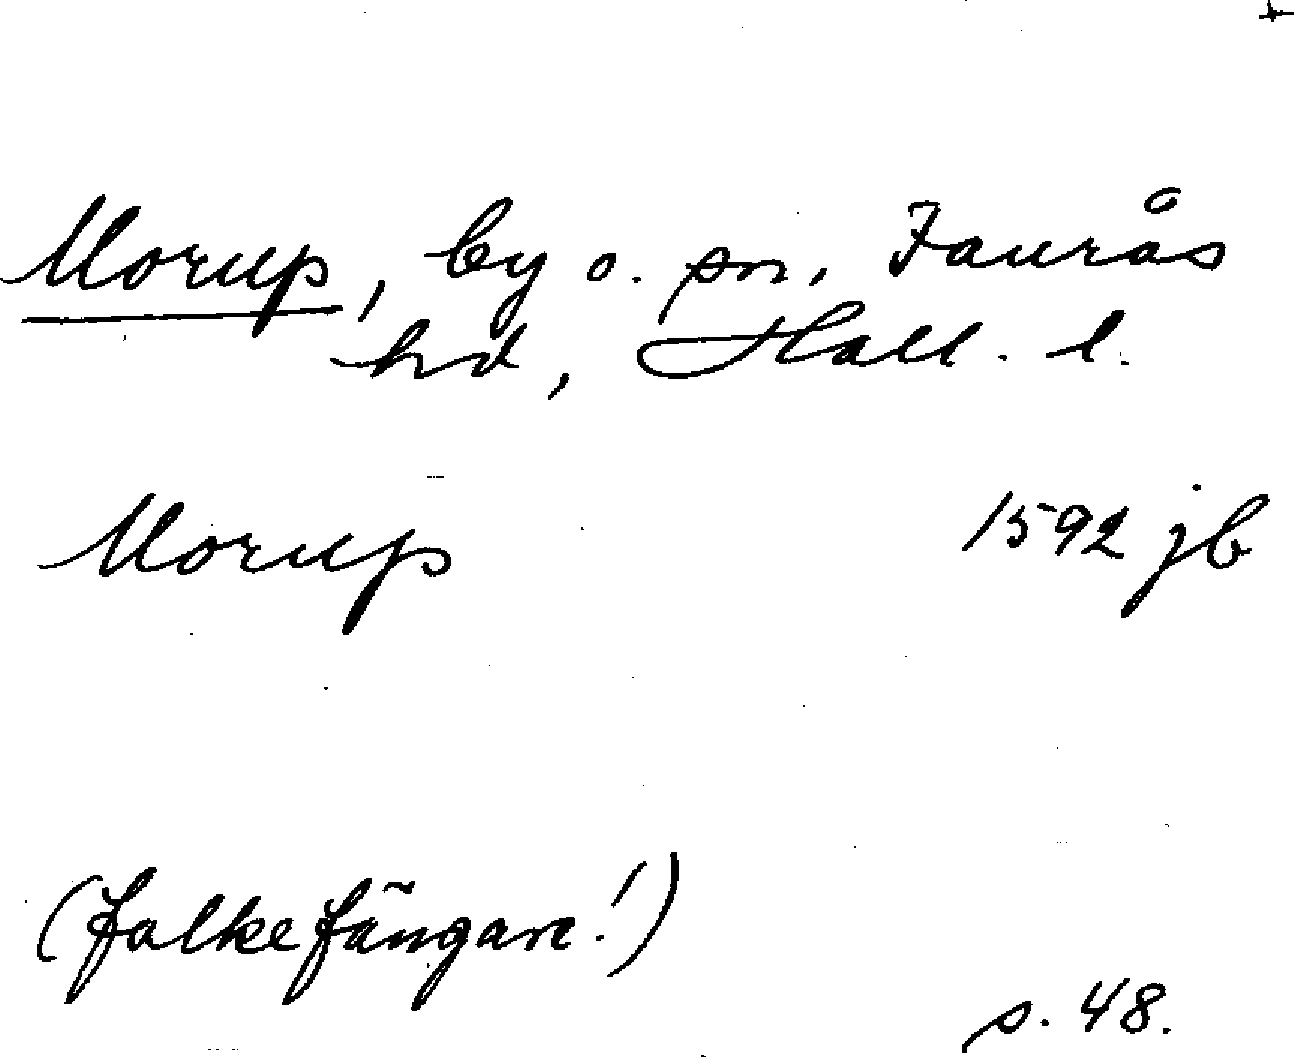 Morup, by o. sn, Faurås
hd, Hall. l.
Morup 1592 jb
(falkefängare!)
s. 48.